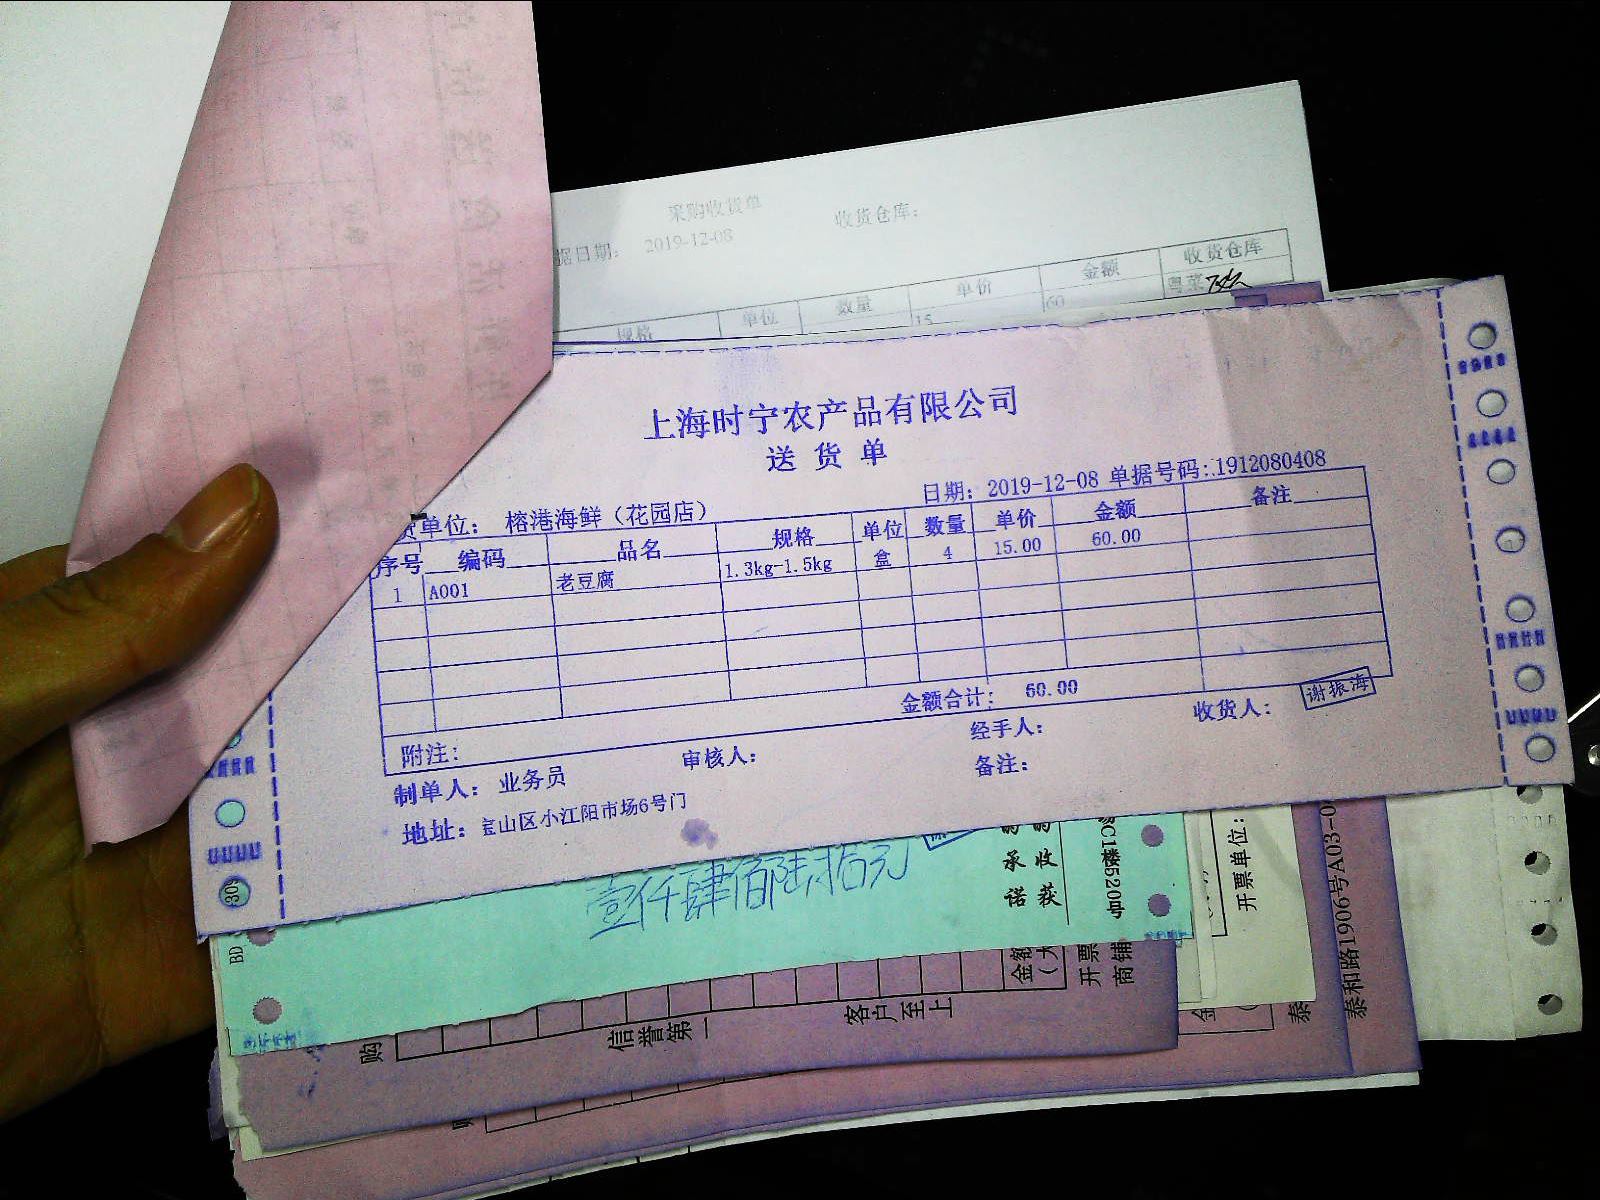 采购收货单
据日期： 2019-12-08 收货仓库：
规格 单位 数量 单价 金额 收货仓库
15 60 粤菜
上海时宁农产品有限公司
送货单
日期：2019-12-08 单据号码:.1912080408
货单位： 榕港海鲜（花园店）
序号 编码 品名 规格 单位 数量 单价 金额 备注
1 A001 老豆腐 1.3kg-1.5kg 盒 4 15.00 60.00
金额合计： 60.00
附注：
制单人： 业务员 审核人： 经手人： 收货人： 谢振海
地址：宝山区小江阳市场6号门 备注：
壹仟肆佰陆拾元
承诺
收获
C1楼520号
开票单位：
泰和路1906号A03-0
BD
309
购
信誉第一
客户至上
金额
（大
开票
商铺
金
（
泰